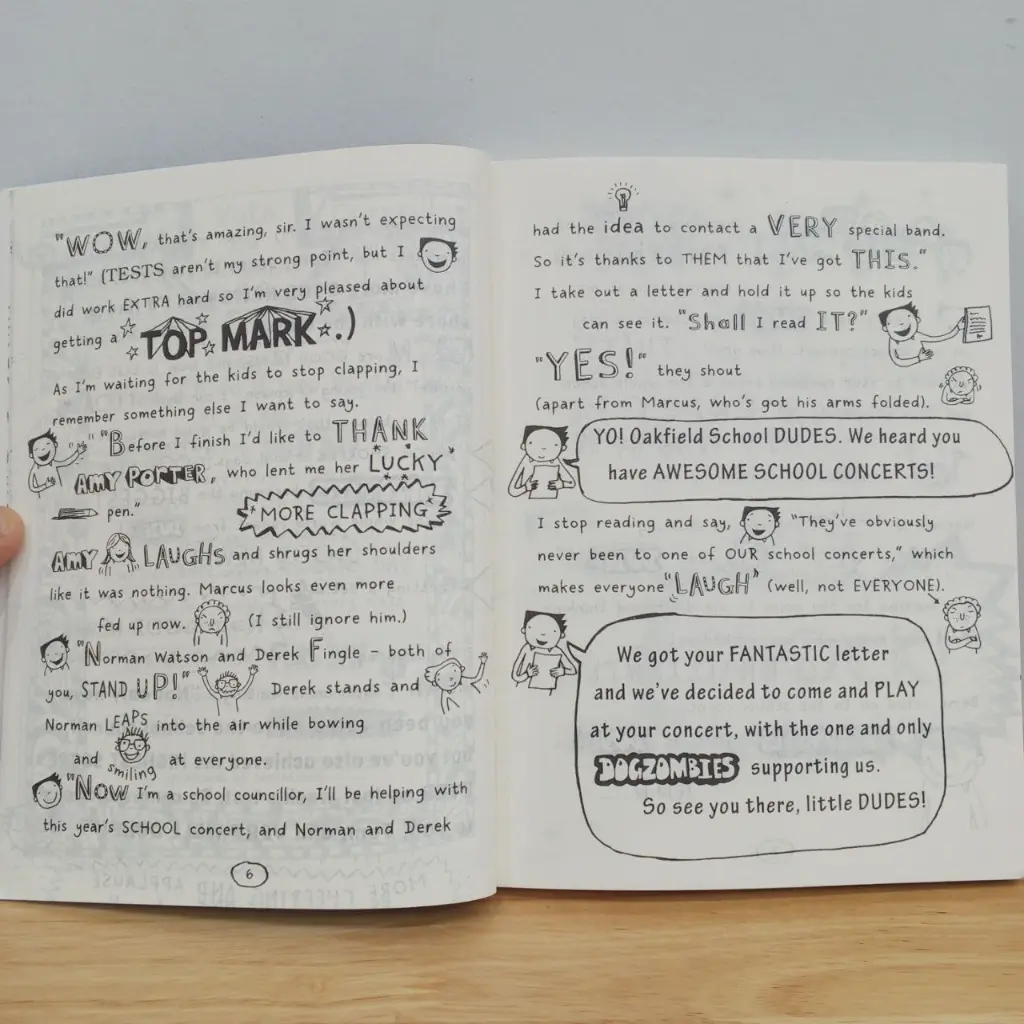 "WOW, that's amazing, sir. I wasn't expecting
that!" (TESTS aren't my strong point, but I
did work EXTRA hard so I'm very pleased about
getting a TOP MARK.)
As I'm waiting for the kids to stop clapping, I
remember something else I want to say.
"Before I finish I'd like to THANK
AMY PORTER, who lent me her LUCKY
pen."
MORE CLAPPING
AMY LAUGHS and shrugs her shoulders
like it was nothing. Marcus looks even more
fed up now. (I still ignore him.)
"Norman Watson and Derek Fingle – both of
you, STAND UP!" Derek stands and
Norman LEAPS into the air while bowing
and smiling at everyone.
"Now I'm a school councillor, I'll be helping with
this year's SCHOOL concert, and Norman and Derek
6
had the idea to contact a VERY special band.
So it's thanks to THEM that I've got THIS."
I take out a letter and hold it up so the kids
can see it. "Shall I read IT?"
"YES!" they shout
(apart from Marcus, who's got his arms folded).
YO! Oakfield School DUDES. We heard you
have AWESOME SCHOOL CONCERTS!
I stop reading and say, "They've obviously
never been to one of OUR school concerts," which
makes everyone "LAUGH" (well, not EVERYONE).
We got your FANTASTIC letter
and we've decided to come and PLAY
at your concert, with the one and only
DOGZOMBIES supporting us.
So see you there, little DUDES!